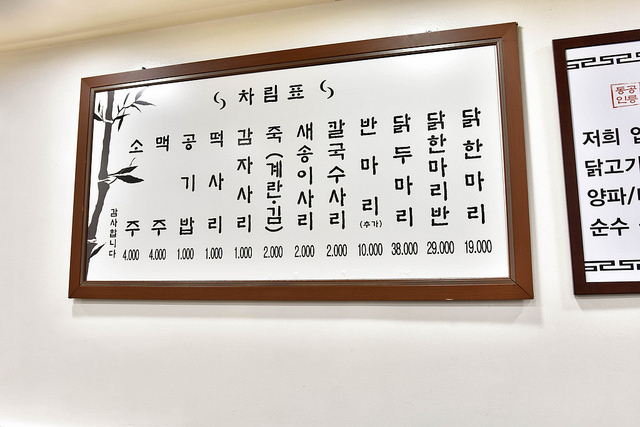 차림표
닭한마리 19.000
닭한마리반 29.000
닭두마리 38.000
반마리(추가) 10.000
칼국수사리 2.000
새송이사리 2.000
죽(계란·김) 2.000
감자사리 1.000
떡사리 1.000
공기밥 1.000
맥주 4.000
소주 4.000
감사합니다
저희
닭고기
양파/
순수